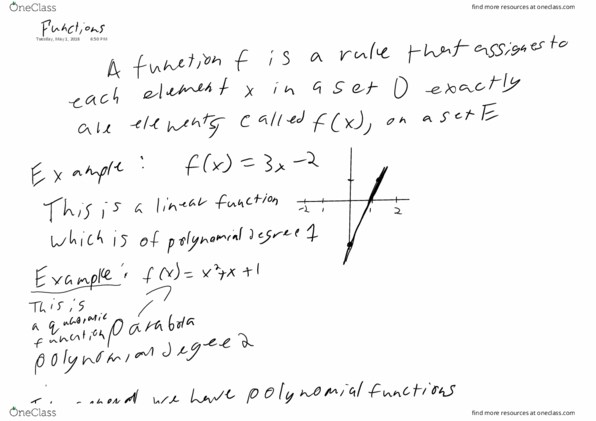 OneClass
find more resources at oneclass.com
Functions
Tuesday, May 1, 2018 4:50 PM
A function f is a rule that assignes to
each element x in a set D exactly
are elements, called f(x), on a set E
Example: f(x) = 3x - 2
This is a linear function
-2 1 1 2
which is of polynomial degree 1
Example: f(x) = x²+x+1
This is
a quadratic
function parabola
polynomial degree 2
we have polynomial functions
OneClass
find more resources at oneclass.com